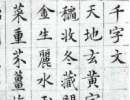 千字文
天地玄黃宇
收冬藏
金生麗水
菜重芥薑